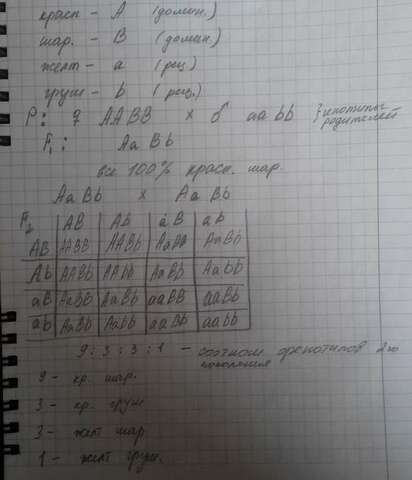 красн. - A (домин.)
шар. - B (домин.)
желт - a (рец.)
груш - b (рец.)
P: ♀ AABB × ♂ aabb } генотипы родителей
F₁: AaBb
все 100% красн. шар.
AaBb × AaBb
F₂ AB Ab aB ab
AB AABB AABb AaBB AaBb
Ab AABb AAbb AaBb Aabb
aB AaBB AaBb aaBB aaBb
ab AaBb Aabb aaBb aabb
9:3:3:1 - соотнош. фенотипов 2го
поколения
9 - кр. шар.
3 - кр. груш
3 - желт шар.
1 - желт груш.